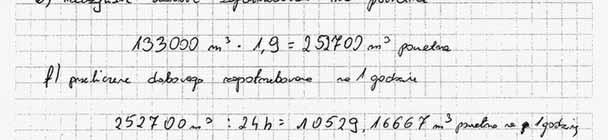 133000 m³ · 1,9 = 252700 m³ powietrza
f) przeliczenie dobowego zapotrzebowania na 1 godzinę
252700 m³ : 24h = 10529,16667 m³ powietrza na 1 godzinę